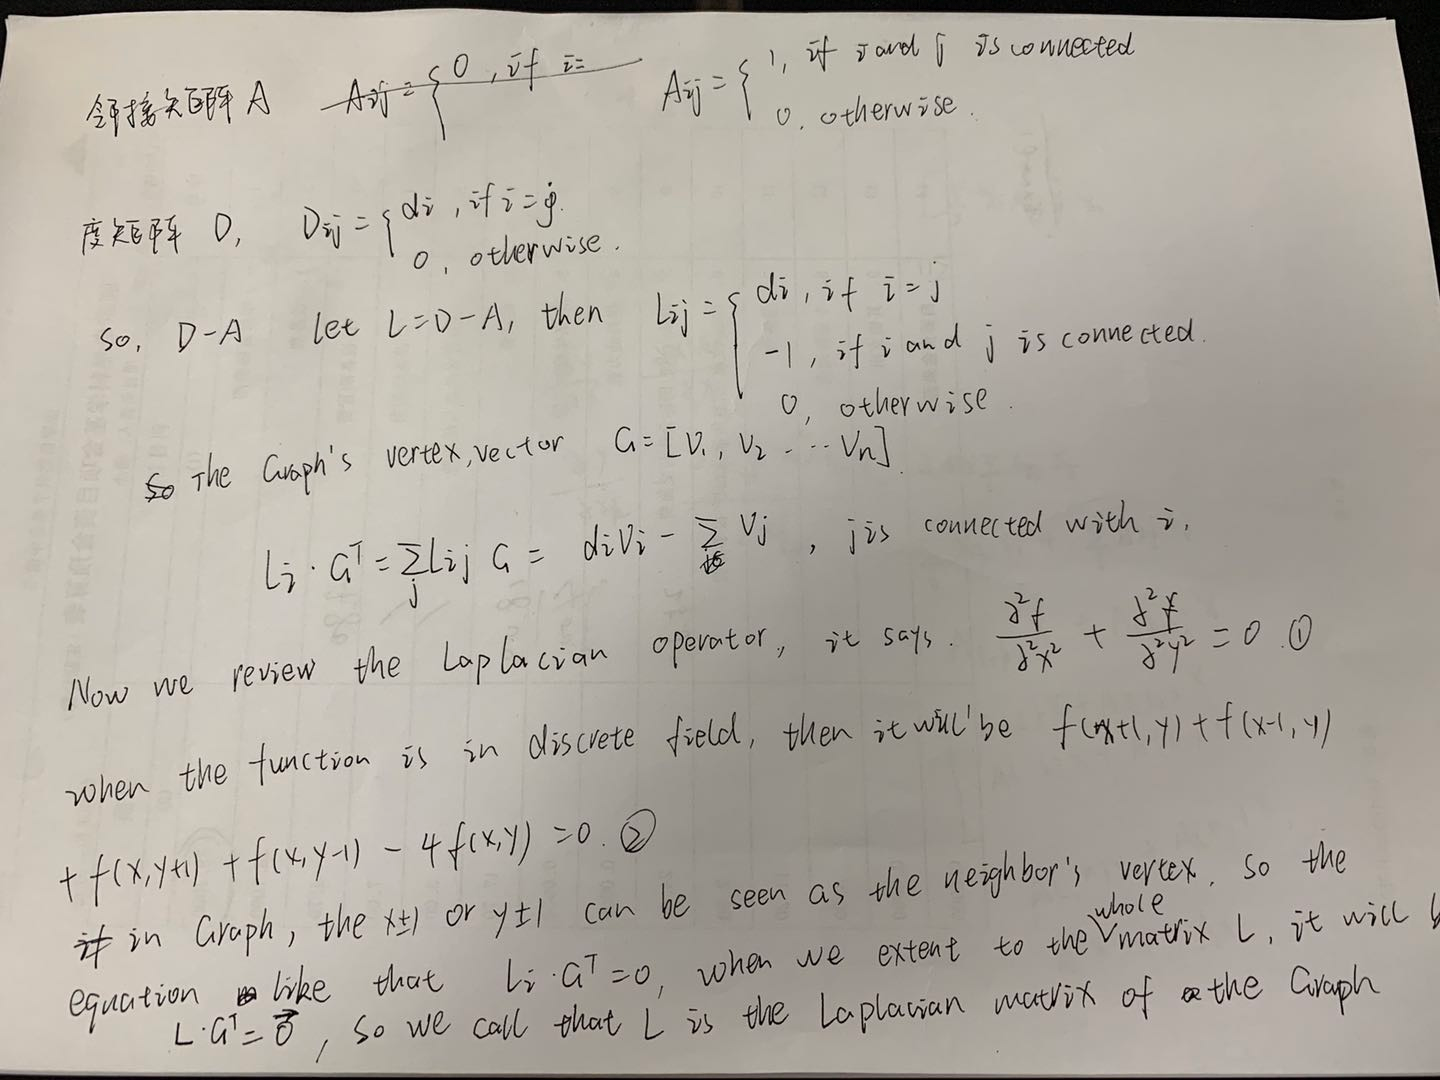 邻接矩阵 A A_ij = { 0, if i= A_ij = { 1, if i and j is connected
0, otherwise.
度矩阵 D, D_ij = { di, if i=j.
0, otherwise.
so, D-A let L=D-A, then L_ij = { di, if i=j
-1, if i and j is connected.
0, otherwise.
so The Graph's vertex, vector G=[V₁, V₂ ... Vn]
L_i · G^T = ∑_j L_ij G = diVi - ∑ Vj, j is connected with i.
Now we review the Laplacian operator, it says. ∂²f/∂²x² + ∂²f/∂²y² = 0. ①
when the function is in discrete field, then it will be f(x+1, y) + f(x-1, y)
+ f(x, y+1) + f(x, y-1) - 4f(x,y) = 0. ②
if in Graph, the x±1 or y±1 can be seen as the neighbor's vertex. so the
equation like that L_i · G^T = 0, when we extent to the whole matrix L, it will
L·G^T = 0⃗, so we call that L is the Laplacian matrix of the Graph